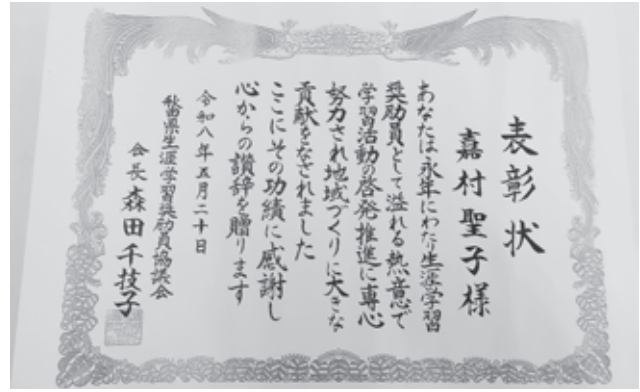 表彰状
嘉村聖子様
あなたは永年にわたり生涯学習
奨励員として溢れる熱意で
学習活動の啓発推進に専心
努力され地域づくりに大きな
貢献をなされました
ここにその功績に感謝し
心からの讃辞を贈ります
令和八年五月二十日
秋田県生涯学習奨励員協議会
会長 森田千技子